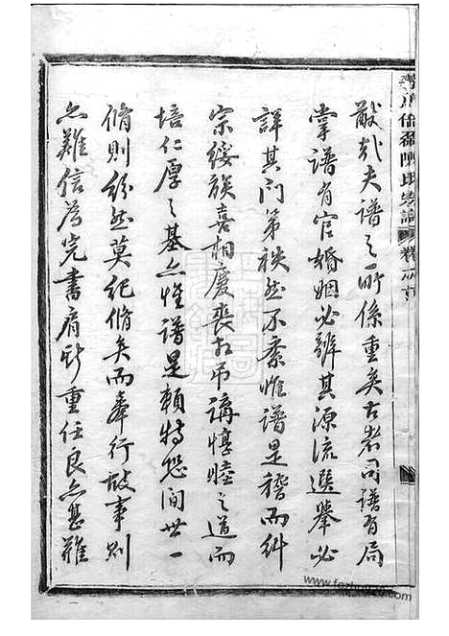 猷哉夫譜之所係重矣古者司譜有局
掌譜有官婚姻必辨其源流選舉必
詳其門第秩然不紊惟譜是稽而糾
宗綏族喜相慶喪相弔講惇睦之道而
培仁厚之基亦惟譜是賴特恐閒世一
脩則紛然莫紀脩矣而奉行故事則
亦難信為完書肩斯重任良亦甚難
陳氏宗譜
卷之首